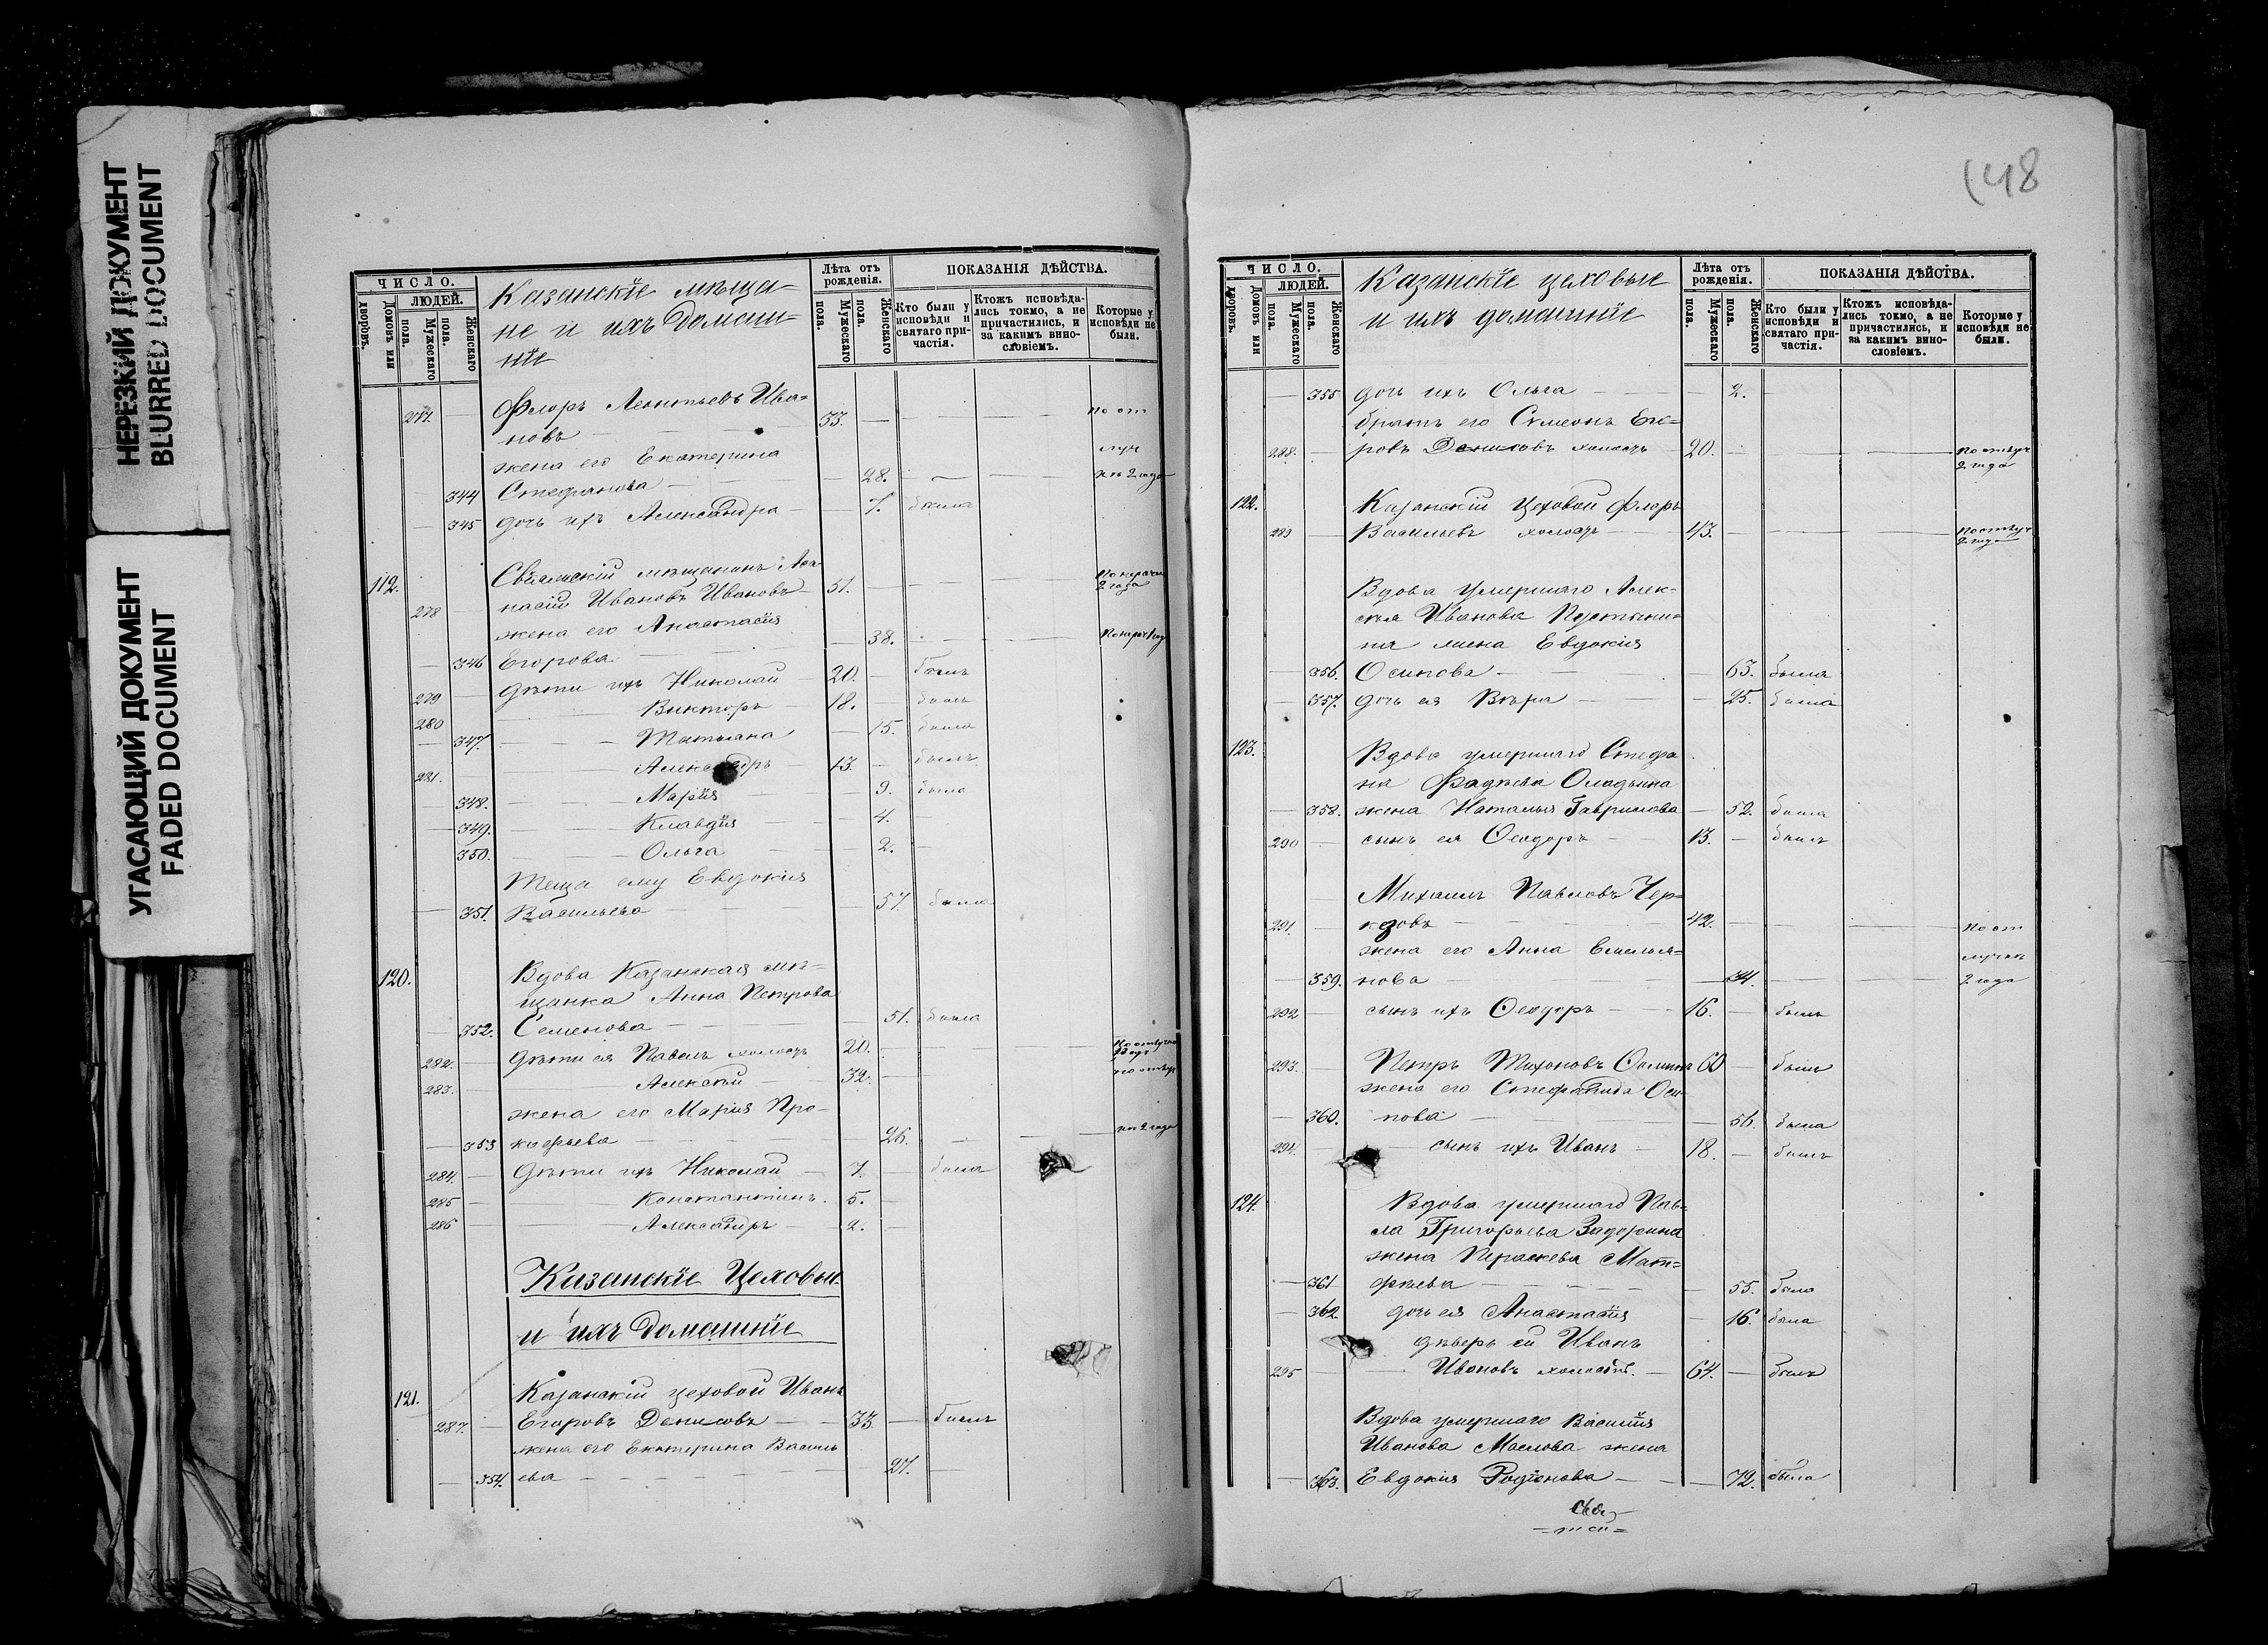 НЕРЕЗКИЙ ДОКУМЕНТ
BLURRED DOCUMENT
УГАСАЮЩИЙ ДОКУМЕНТ
FADED DOCUMENT
ЧИСЛО.
ЛЮДЕЙ.
Домовъ или дворовъ.
Мужескаго пола.
Женскаго пола.
Казанскіе мѣща-
не и ихъ домаш-
ніе
Лѣта отъ рожденія.
Мужескаго пола.
Женскаго
ПОКАЗАНІЯ ДѢЙСТВА.
Кто были у исповѣди и святаго при-частія.
Ктожъ исповѣда-лись токмо, а не причастились, и за какимъ вино-словіемъ.
Которые у исповѣди не были.
277. Флоръ Леонтьевъ Ива=
новъ 33. по от
жена его Екатерина луч
344 Стефанова 28. 2 года
345 дочь ихъ Александра 7. была
112. Свіяжскій мѣщанинъ Аѳа-
278 насій Ивановъ Ивановъ 51. 2 года
жена его Анастасія
346 Егорова 38.
279 дѣти ихъ Николай 20. былъ
280 Викторъ 18. былъ
347. Татьяна 15. была
281. Александръ 13. былъ
348. Марія 9. была
349. Клавдія 4.
350. Ольга 2.
Теща ему Евдокія
351. Васильева 57 была
120. Вдова Казанская мѣ=
щанка Анна Петрова
352. Семенова 51. была
282. дѣти ея Павелъ холостъ 20.
283. Алексѣй 32.
жена его Марія Про-
353 кофьева 26. 2 года
284. дѣти ихъ Николай 7. былъ
285 Константинъ. 5.
286 Александръ 2.
Казанскіе Цеховые
и ихъ домашніе
121. Казанскій цеховой Иванъ
287. Егоровъ Денисовъ 33 былъ
жена его Екатерина Василь
354. ева 27.
148
ЧИСЛО.
ЛЮДЕЙ.
Домовъ или дворовъ.
Мужескаго пола.
Женскаго пола.
Казанскіе цеховые
и ихъ домашніе
Лѣта отъ рожденія.
Мужескаго пола.
Женскаго пола.
ПОКАЗАНІЯ ДѢЙСТВА.
Кто были у исповѣди и святаго при-частія.
Ктожъ исповѣда-лись токмо, а не причастились, и за какимъ вино-словіемъ.
Которые у исповѣди не были.
355 дочь ихъ Ольга 2.
братъ его Симеонъ Его=
288. ровъ Денисовъ холостъ 20. по отлуч 2 года
122. Казанскій Цеховой Флоръ
289 Васильевъ холостъ 43. по отлуч 2 года
Вдова умершаго Алек-
сѣя Иванова Пустыни=
на жена Евдокія
356. Осипова 63. была
357. дочь ея Вѣра 25. была
123. Вдова умершаго Стефа
на Фадѣева Оладьина
358. жена Наталья Гаврилова 52. была
290 сынъ ея Ѳеодоръ 13. былъ
Михаилъ Павловъ Чер=
291. 42. по от
жена его Анна Емелья= лучкѣ
359. нова 34. 2 года
292 сынъ ихъ Ѳеодоръ 16. былъ
293. Петръ Тихоновъ 60 былъ
жена его Стефанида Оси-
360. пова 56. была
294. сынъ ихъ Иванъ 18. былъ
124. Вдова умершаго Пав=
ла Григорьева Задорина
жена Параскева Мат=
361 фѣева 55. была
362. дочь ея Анастасія 16. была
дѣверь ей Иванъ
295 Ивановъ холостъ. 64. былъ
Вдова умершаго Василія
Иванова Маслова жена
363. Евдокія Родіонова 72. была